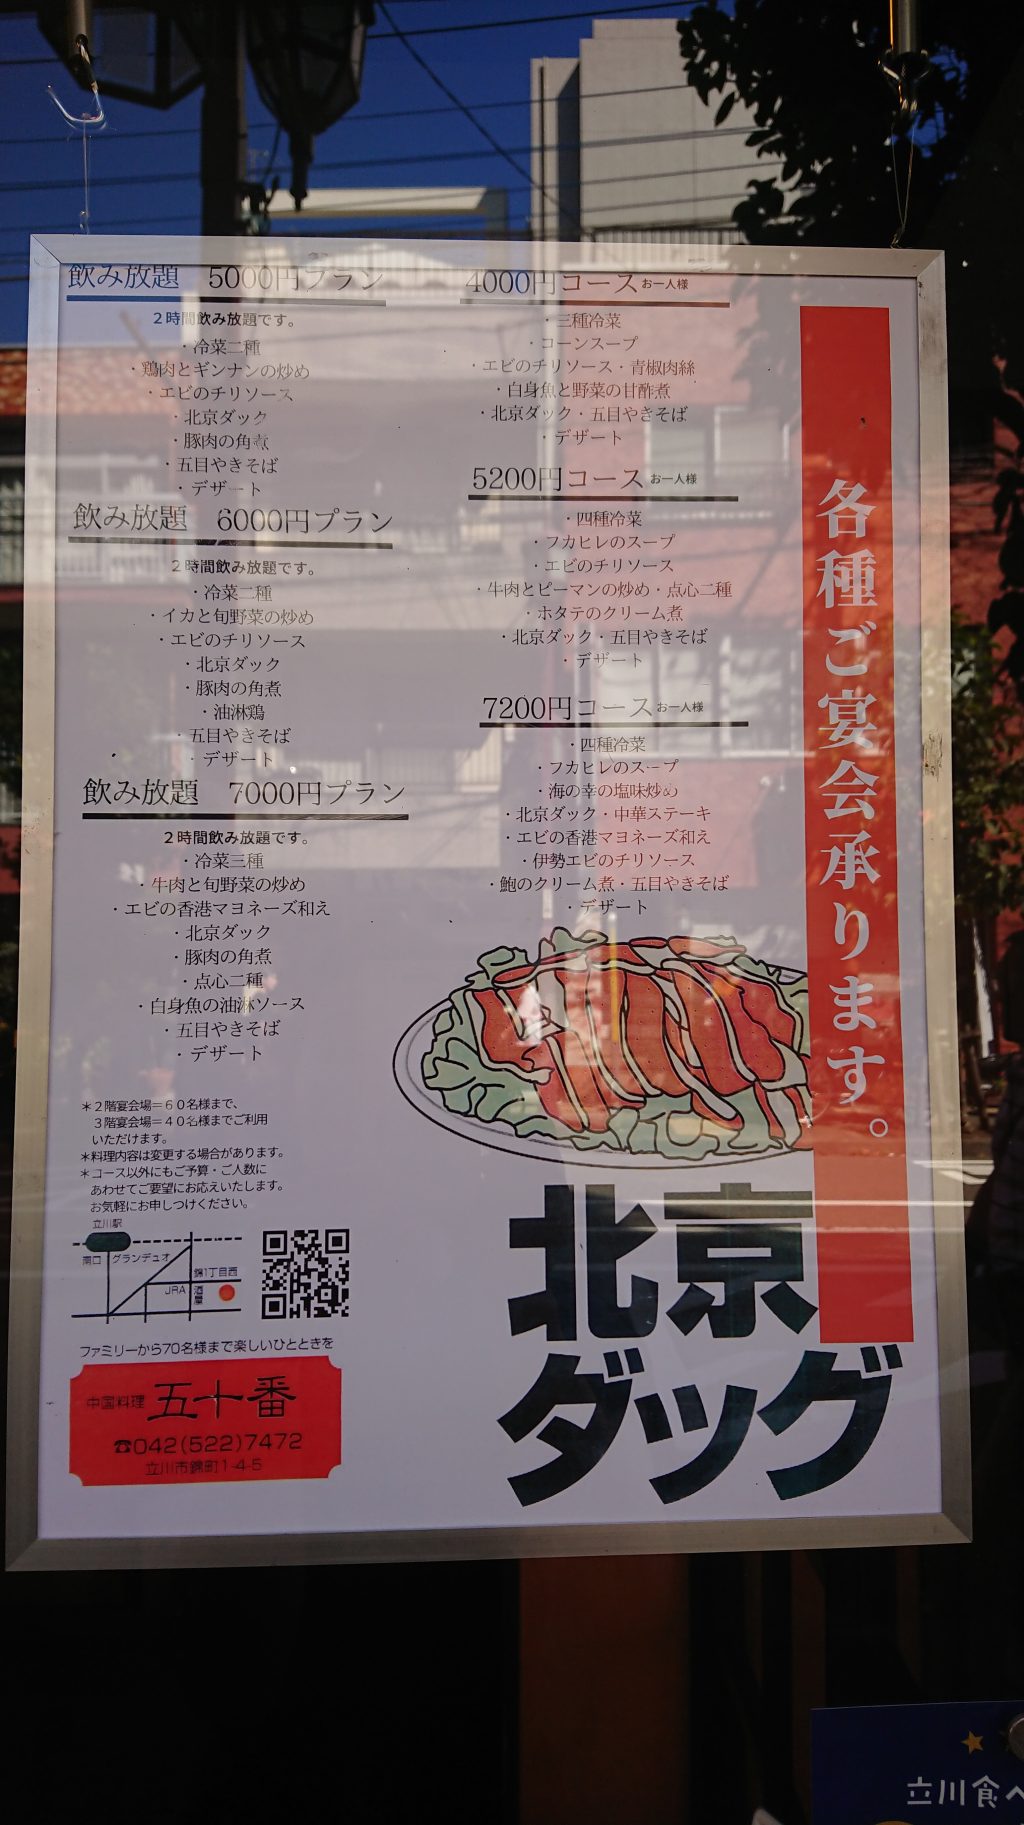 飲み放題 5000円プラン
2時間飲み放題です。
・冷菜二種
・鶏肉とギンナンの炒め
・エビのチリソース
・北京ダック
・豚肉の角煮
・五目やきそば
・デザート
飲み放題 6000円プラン
2時間飲み放題です。
・冷菜二種
・イカと旬野菜の炒め
・エビのチリソース
・北京ダック
・豚肉の角煮
・油淋鶏
・五目やきそば
・デザート
飲み放題 7000円プラン
2時間飲み放題です。
・冷菜三種
・牛肉と旬野菜の炒め
・エビの香港マヨネーズ和え
・北京ダック
・豚肉の角煮
・点心二種
・白身魚の油淋ソース
・五目やきそば
・デザート
4000円コースお一人様
・三種冷菜
・コーンスープ
・エビのチリソース・青椒肉絲
・白身魚と野菜の甘酢煮
・北京ダック・五目やきそば
・デザート
5200円コースお一人様
・四種冷菜
・フカヒレのスープ
・エビのチリソース
・牛肉とピーマンの炒め・点心二種
・ホタテのクリーム煮
・北京ダック・五目やきそば
・デザート
7200円コースお一人様
・四種冷菜
・フカヒレのスープ
・海の幸の塩味炒め
・北京ダック・中華ステーキ
・エビの香港マヨネーズ和え
・伊勢エビのチリソース
・鮑のクリーム煮・五目やきそば
・デザート
各種ご宴会承ります。
北京
ダック
＊2階宴会場＝60名様まで、
3階宴会場＝40名様までご利用
いただけます。
＊料理内容は変更する場合があります。
＊コース以外にもご予算・ご人数に
あわせてご要望にお応えいたします。
お気軽にお申しつけください。
立川駅
南口
グランデュオ
錦1丁目西
JRA
酒屋
ファミリーから70名様まで楽しいひとときを
中国料理 五十番
☎042(522)7472
立川市錦町1-4-5
立川食べ